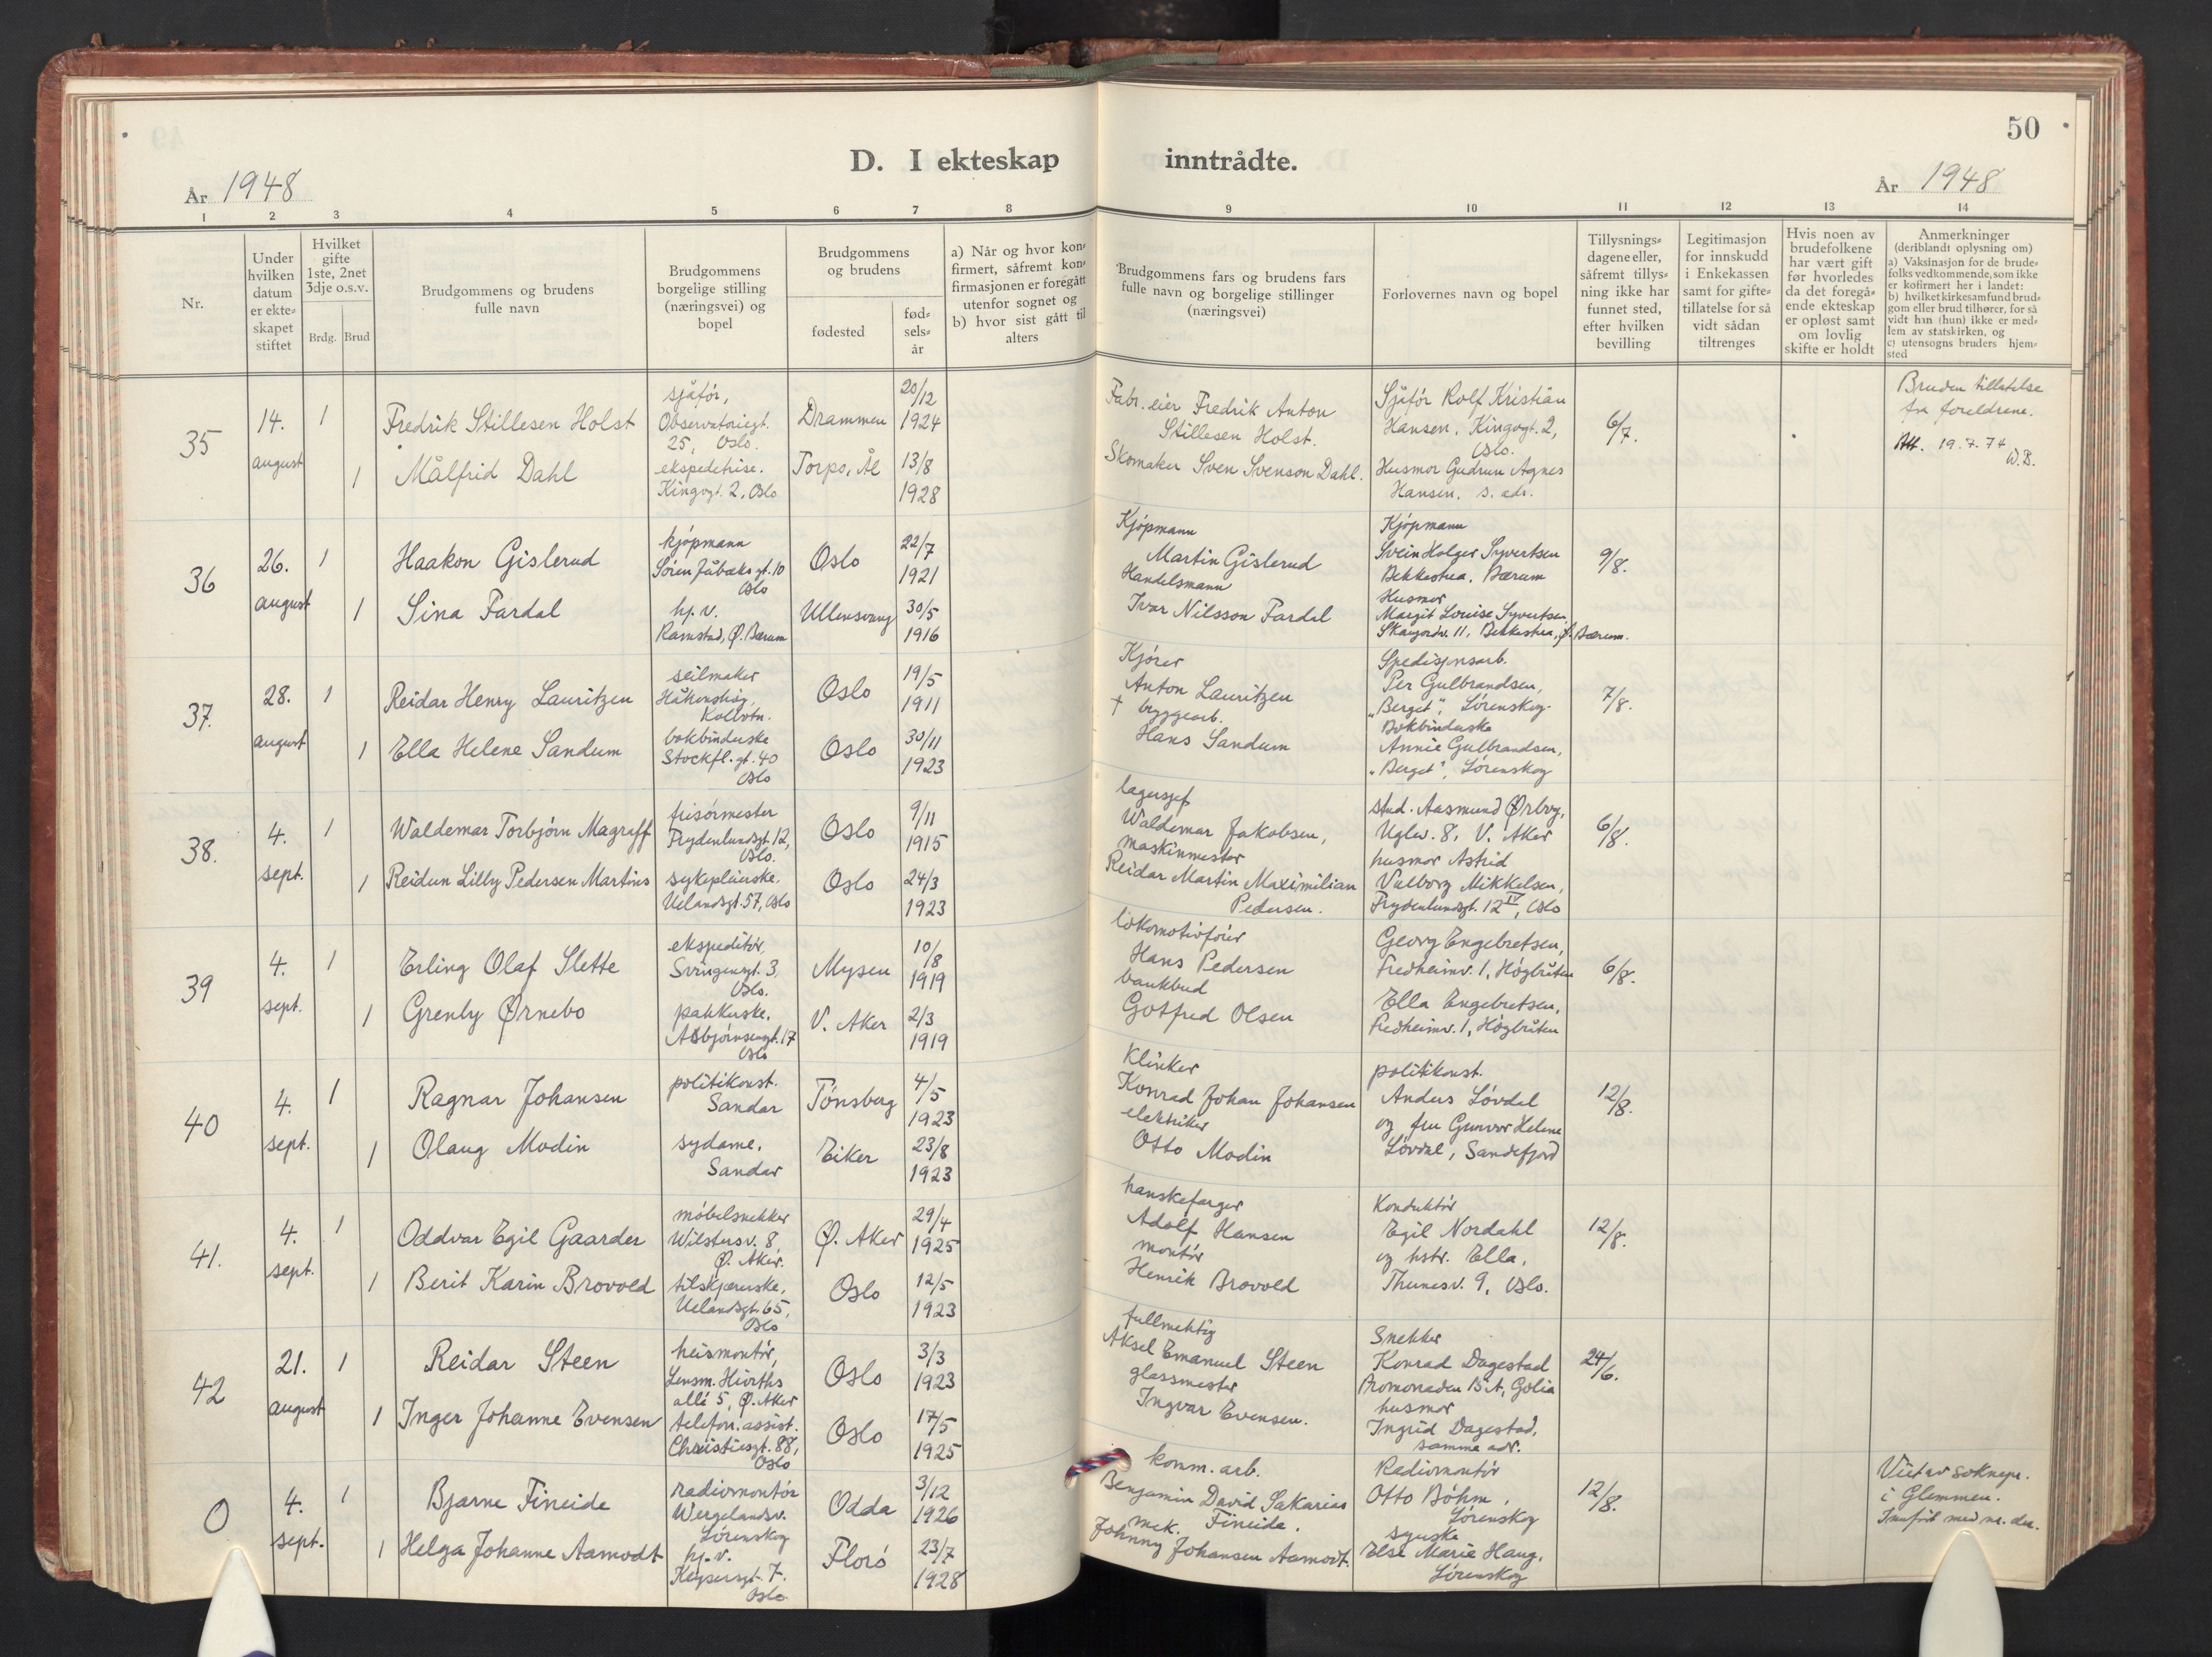 50
D. I ekteskap inntrådte.
År 1948
År 1948
1 2 3 4 5 6 7 8 9 10 11 12 13 14
Nr.
Under
hvilken
datum
er ekte-
skapet
stiftet
Hvilket
gifte
1ste, 2net
3dje o.s.v.
Brdg. Brud
Brudgommens og brudens
fulle navn
Brudgommens
borgelige stilling
(næringsvei) og
bopel
Brudgommens
og brudens
fødested
fød-
sels-
år
a) Når og hvor kon-
firmert, såfremt kon-
firmasjonen er foregått
utenfor sognet og
b) hvor sist gått til
alters
Brudgommens fars og brudens fars
fulle navn og borgelige stillinger
(næringsvei)
Forlovernes navn og bopel
Tillysnings-
dagene eller,
såfremt tillys-
ning ikke har
funnet sted,
efter hvilken
bevilling
Legitimasjon
for innskudd
i Enkekassen
samt for gifte-
tillatelse for så
vidt sådan
tiltrenges
Hvis noen av
brudefolkene
har vært gift
før hvorledes
da det foregå-
ende ekteskap
er opløst samt
om lovlig
skifte er holdt
Anmerkninger
(deriblandt oplysning om)
a) Vaksinasjon for de brude-
folks vedkommende, som ikke
er kofirmert her i landet:
b) hvilket kirkesamfund brud-
gom eller brud tilhører, for så
vidt han (hun) ikke er med-
lem av statskirken, og
c) utensogns bruders hjem-
sted
35
14.
august
1
Fredrik Stillesen Holst
sjåfør,
Observatoriegt.
25, Oslo.
Drammen
20/12
1924
1
Målfrid Dahl
ekspeditrise.
Kingosgt. 2, Oslo
Torpo, Ål
13/8
1928
Fabr. eier Fredrik Anton
Stillesen Holst.
Skomaker Sven Svenson Dahl.
Sjåfør Rolf Kristian
Hansen, Kingosgt. 2,
Oslo.
Husmor Gudrun Agnes
Hansen, s. adr.
6/7.
Bruden tillatelse
fra foreldrene.
Att. 19.7.74
W.B.
36
26.
august
1
Haakon Gislerud
kjøpmann
Søren Jåbæks gt. 10
Oslo
Oslo
22/7
1921
1
Sina Fardal
hj. v.
Ramstad, Ø. Bærum
Ullensvang
30/5
1916
Kjøpmann
Martin Gislerud
Handelsmann
Ivar Nilsson Fardal
Kjøpmann
Svein Holger Syvertsen
Bekkestua, Bærum
Husmor
Margit Louise Syvertsen
11, Bekkestua, Ø. Bærum.
9/8.
37.
28.
august
1
Reidar Henry Lauritzen
seilmaker
Håkonshøg,
Kolbotn.
Oslo
19/5
1911
1
Ella Helene Sandum
bokbinderske
Stockfl. gt. 40
Oslo
Oslo
30/11
1923
Kjører
Anton Lauritzen
† bryggearb.
Hans Sandum
Spedisjonsarb.
Per Gulbrandsen,
"Berget", Lørenskog.
Bokbinderske
Annie Gulbrandsen,
"Berget", Lørenskog
7/8.
38.
4.
sept.
1
Waldemar Torbjørn Magraff
frisørmester
Frydenlundsgt. 12,
Oslo.
Oslo
9/11
1915
1
Reidun Lilly Pedersen Martins
sykepleierske.
Uelandsgt. 57, Oslo
Oslo
24/3
1923
lagersjef
Waldemar Jakobsen,
maskinmester
Reidar Martin Maximilian
Pedersen.
stud. Aasmund Ørbog,
Uglev. 8, V. Aker
husmor Astrid
Valborg Mikkelsen,
Frydenlundsgt. 12 IV, Oslo
6/8.
39
4.
sept.
1
Erling Olaf Slette
ekspeditør,
Svingensgt. 3,
Oslo.
Mysen
10/8
1919
1
Grenly Ørnebo
pakkerske.
Asbjørnsensgt. 17
Oslo
V. Aker
2/3
1919
lokomotivfører
Hans Pedersen
bankbud
Gotfred Olsen
Georg Engebretsen,
Fredheimv. 1, Høybråten
Ella Engebretsen,
Fredheimv. 1, Høybråten
6/8.
40
4.
sept.
1
Ragnar Johansen
politikonst.
Sandar
Tønsberg
4/5
1923
1
Olaug Modin
sydame.
Sandar
Eiker
23/8
1923
Klinker
Konrad Johan Johansen
elektriker
Otto Modin
politikonst.
Anders Løvdal
og fru Gunvor Helene
Løvdal, Sandefjord
12/8.
41.
4.
sept.
1
Oddvar Egil Gaarder
møbelsnekker
Wilstersv. 8,
Ø. Aker.
Ø. Aker
29/4
1925
1
Berit Karin Brovold
tilskjærerske,
Uelandsgt. 65,
Oslo
Oslo
12/5
1923
hanskefarger
Adolf Hansen
montør
Henrik Brovold
Konduktør
Egil Nordahl
og hstr. Ella,
Thunesv. 9, Oslo.
12/8.
42
21.
august
1
Reidar Steen
heismontør,
Lensm. Hiorths
allé 5, Ø. Aker
Oslo
3/3
1923
1
Inger Johanne Evensen
telefon.assist.
Christiesgt. 88,
Oslo
Oslo
17/5
1925
fullmektig
Aksel Emanuel Steen
glassmester
Ingvar Evensen.
Snekker
Konrad Dagestad
Promonaden 15 A, Golia
husmor
Ingrid Dagestad,
samme adr.
24/6.
0
4.
sept.
1
Bjarne Fineide
radiomontør
Wergelandsv.
Lørenskog
Odda
3/12
1926
1
Helga Johanne Aamodt
hj. v.
Keysersgt. 7.
Oslo
Florø
23/7
1928
komm. arb.
Benjamin David Sakarias
Fineide.
mek.
Johnny Johansen Aamodt.
Radiomontør
Otto Bøhm,
Lørenskog
syerske
Else Marie Haug,
Lørenskog
12/8.
Viet av soknepr.
i Glemmen.
Innført med nr. der.